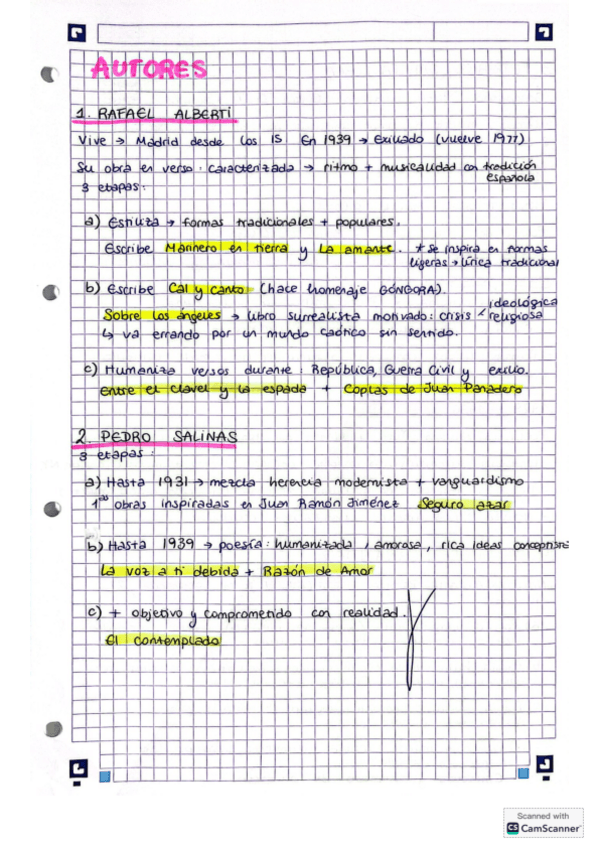 AUTORES
1. RAFAEL ALBERTI
Vive → Madrid desde los 15 En 1939 → Exiliado (vuelve 1977)
Su obra en verso: caracterizada → ritmo + musicalidad con tradición
española
3 etapas:
a) Estiliza → formas tradicionales + populares.
Escribe Marinero en tierra y La amante. * Se inspira en formas
ligeras → lírica tradicional
b) Escribe Cal y canto (hace homenaje GÓNGORA).
ideológica
Sobre los ángeles → libro surrealista motivado: crisis < religiosa
↳ va errando por un mundo caótico sin sentido.
c) Humaniza versos durante: República, Guerra Civil y exilio.
Entre el clavel y la espada + Coplas de Juan Panadero
2. PEDRO SALINAS
3 etapas:
a) Hasta 1931 → mezcla herencia modernista + vanguardismo
1ªˢ obras inspiradas en Juan Ramón Jiménez Seguro azar
b) Hasta 1939 → poesía: humanizada, amorosa, rica ideas conceptista
La voz a ti debida + Razón de Amor
c) + objetivo y comprometido con realidad.
El contemplado
Scanned with
CS CamScanner